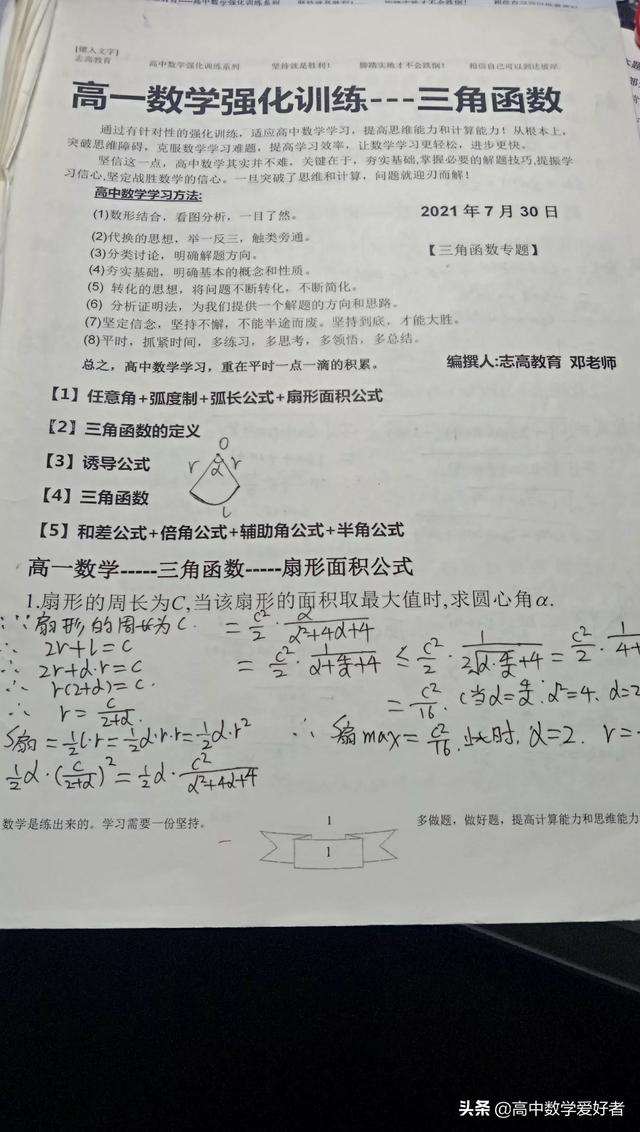 [键入文字]
志高教育 高中数学强化训练系列 坚持就是胜利！ 脚踏实地才不会跌倒！ 相信自己可以到达彼岸
高一数学强化训练---三角函数
通过有针对性的强化训练，适应高中数学学习，提高思维能力和计算能力！从根本上，
突破思维障碍，克服数学学习难题，提高学习效率，让数学学习更轻松，进步更快。
坚信这一点，高中数学其实并不难，关键在于，夯实基础,掌握必要的解题技巧,提振学
习信心,坚定战胜数学的信心。一旦突破了思维和计算，问题就迎刃而解！
高中数学学习方法:
(1)数形结合，看图分析，一目了然。
2021 年 7 月 30 日
(2)代换的思想，举一反三，触类旁通。
(3)分类讨论，明确解题方向。
【三角函数专题】
(4)夯实基础，明确基本的概念和性质。
(5) 转化的思想，将问题不断转化，不断简化。
(6) 分析证明法，为我们提供一个解题的方向和思路。
(7)坚定信念，坚持不懈，不能半途而废。坚持到底，才能大胜。
(8)平时，抓紧时间，多练习，多思考，多领悟，多总结。
总之，高中数学学习，重在平时一点一滴的积累。
编撰人:志高教育 邓老师
【1】任意角+弧度制+弧长公式+扇形面积公式
【2】三角函数的定义
O
【3】诱导公式
r α r
【4】三角函数
l
【5】和差公式+倍角公式+辅助角公式+半角公式
高一数学-----三角函数-----扇形面积公式
1.扇形的周长为C,当该扇形的面积取最大值时,求圆心角α.
∵扇形的周长为C.
∴ 2r+l=C
∴ 2r+α·r=C
∴ r(2+α)=C.
∴ r=C/(2+α).
S扇=½l·r=½α·r·r=½α·r²
½α·(C/(2+α))²=½α·C²/(α²+4α+4)
=C²/2·α/(α²+4α+4)
=C²/2·1/(α+4/α+4)≤C²/2·1/(2√(α·4/α)+4)=C²/2·1/4+
=C²/16.(当α=4/α:α²=4、α=2
∴ S扇max=C²/16.此时,α=2. r=
数学是练出来的。学习需要一份坚持。
1
多做题，做好题，提高计算能力和思维能力
1
头条 @高中数学爱好者